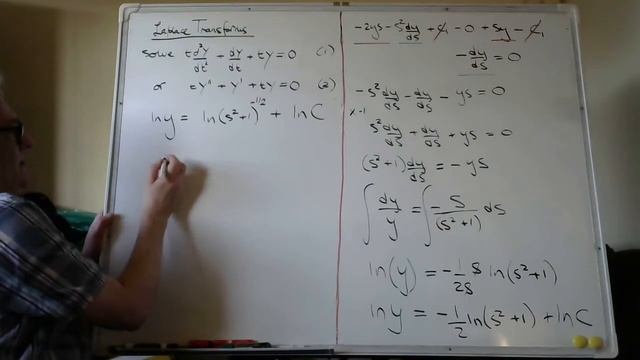 Laplace Transforms
solve t d²Y/dt² + dY/dt + tY = 0 (1)
or tY'' + Y' + tY = 0 (2)
ln y = ln(s²+1)^(-1/2) + ln C
-2ys - s² dy/ds + c₁ - 0 + sy - c₁
- dy/ds = 0
-s² dy/ds - dy/ds - ys = 0
x-1
s² dy/ds + dy/ds + ys = 0
(s²+1) dy/ds = -ys
∫ dy/y = ∫ -s/(s²+1) ds
ln(y) = -1/2s s ln(s²+1)
ln y = -1/2 ln(s²+1) + ln C